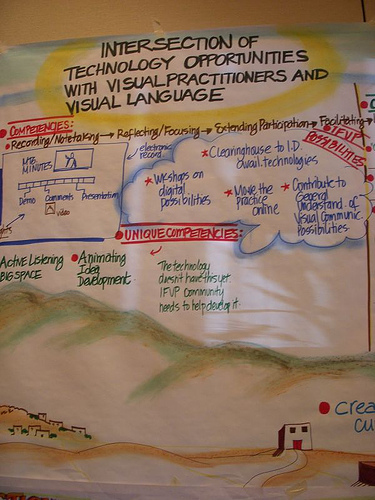 INTERSECTION OF
TECHNOLOGY OPPORTUNITIES
WITH VISUAL PRACTITIONERS AND
VISUAL LANGUAGE
COMPETENCIES:
Recording/Notetaking → Reflecting/Focusing → Extending Participation → Facilitating →
electronic record
MTG MINUTES
Demo
Comments
Presentation
video
IFVP
POSSIBILITIES
* Clearinghouse to I.D.
avail. technologies
* Wkshops on
digital
possibilities
* Move the
practice
online
* Contribute to
General
Understand. of
Visual Communic.
Possibilities
UNIQUE COMPETENCIES:
Active Listening
BIG SPACE
Animating
Idea
Development
The technology
doesn't have this yet.
IFVP Community
needs to help develop it.